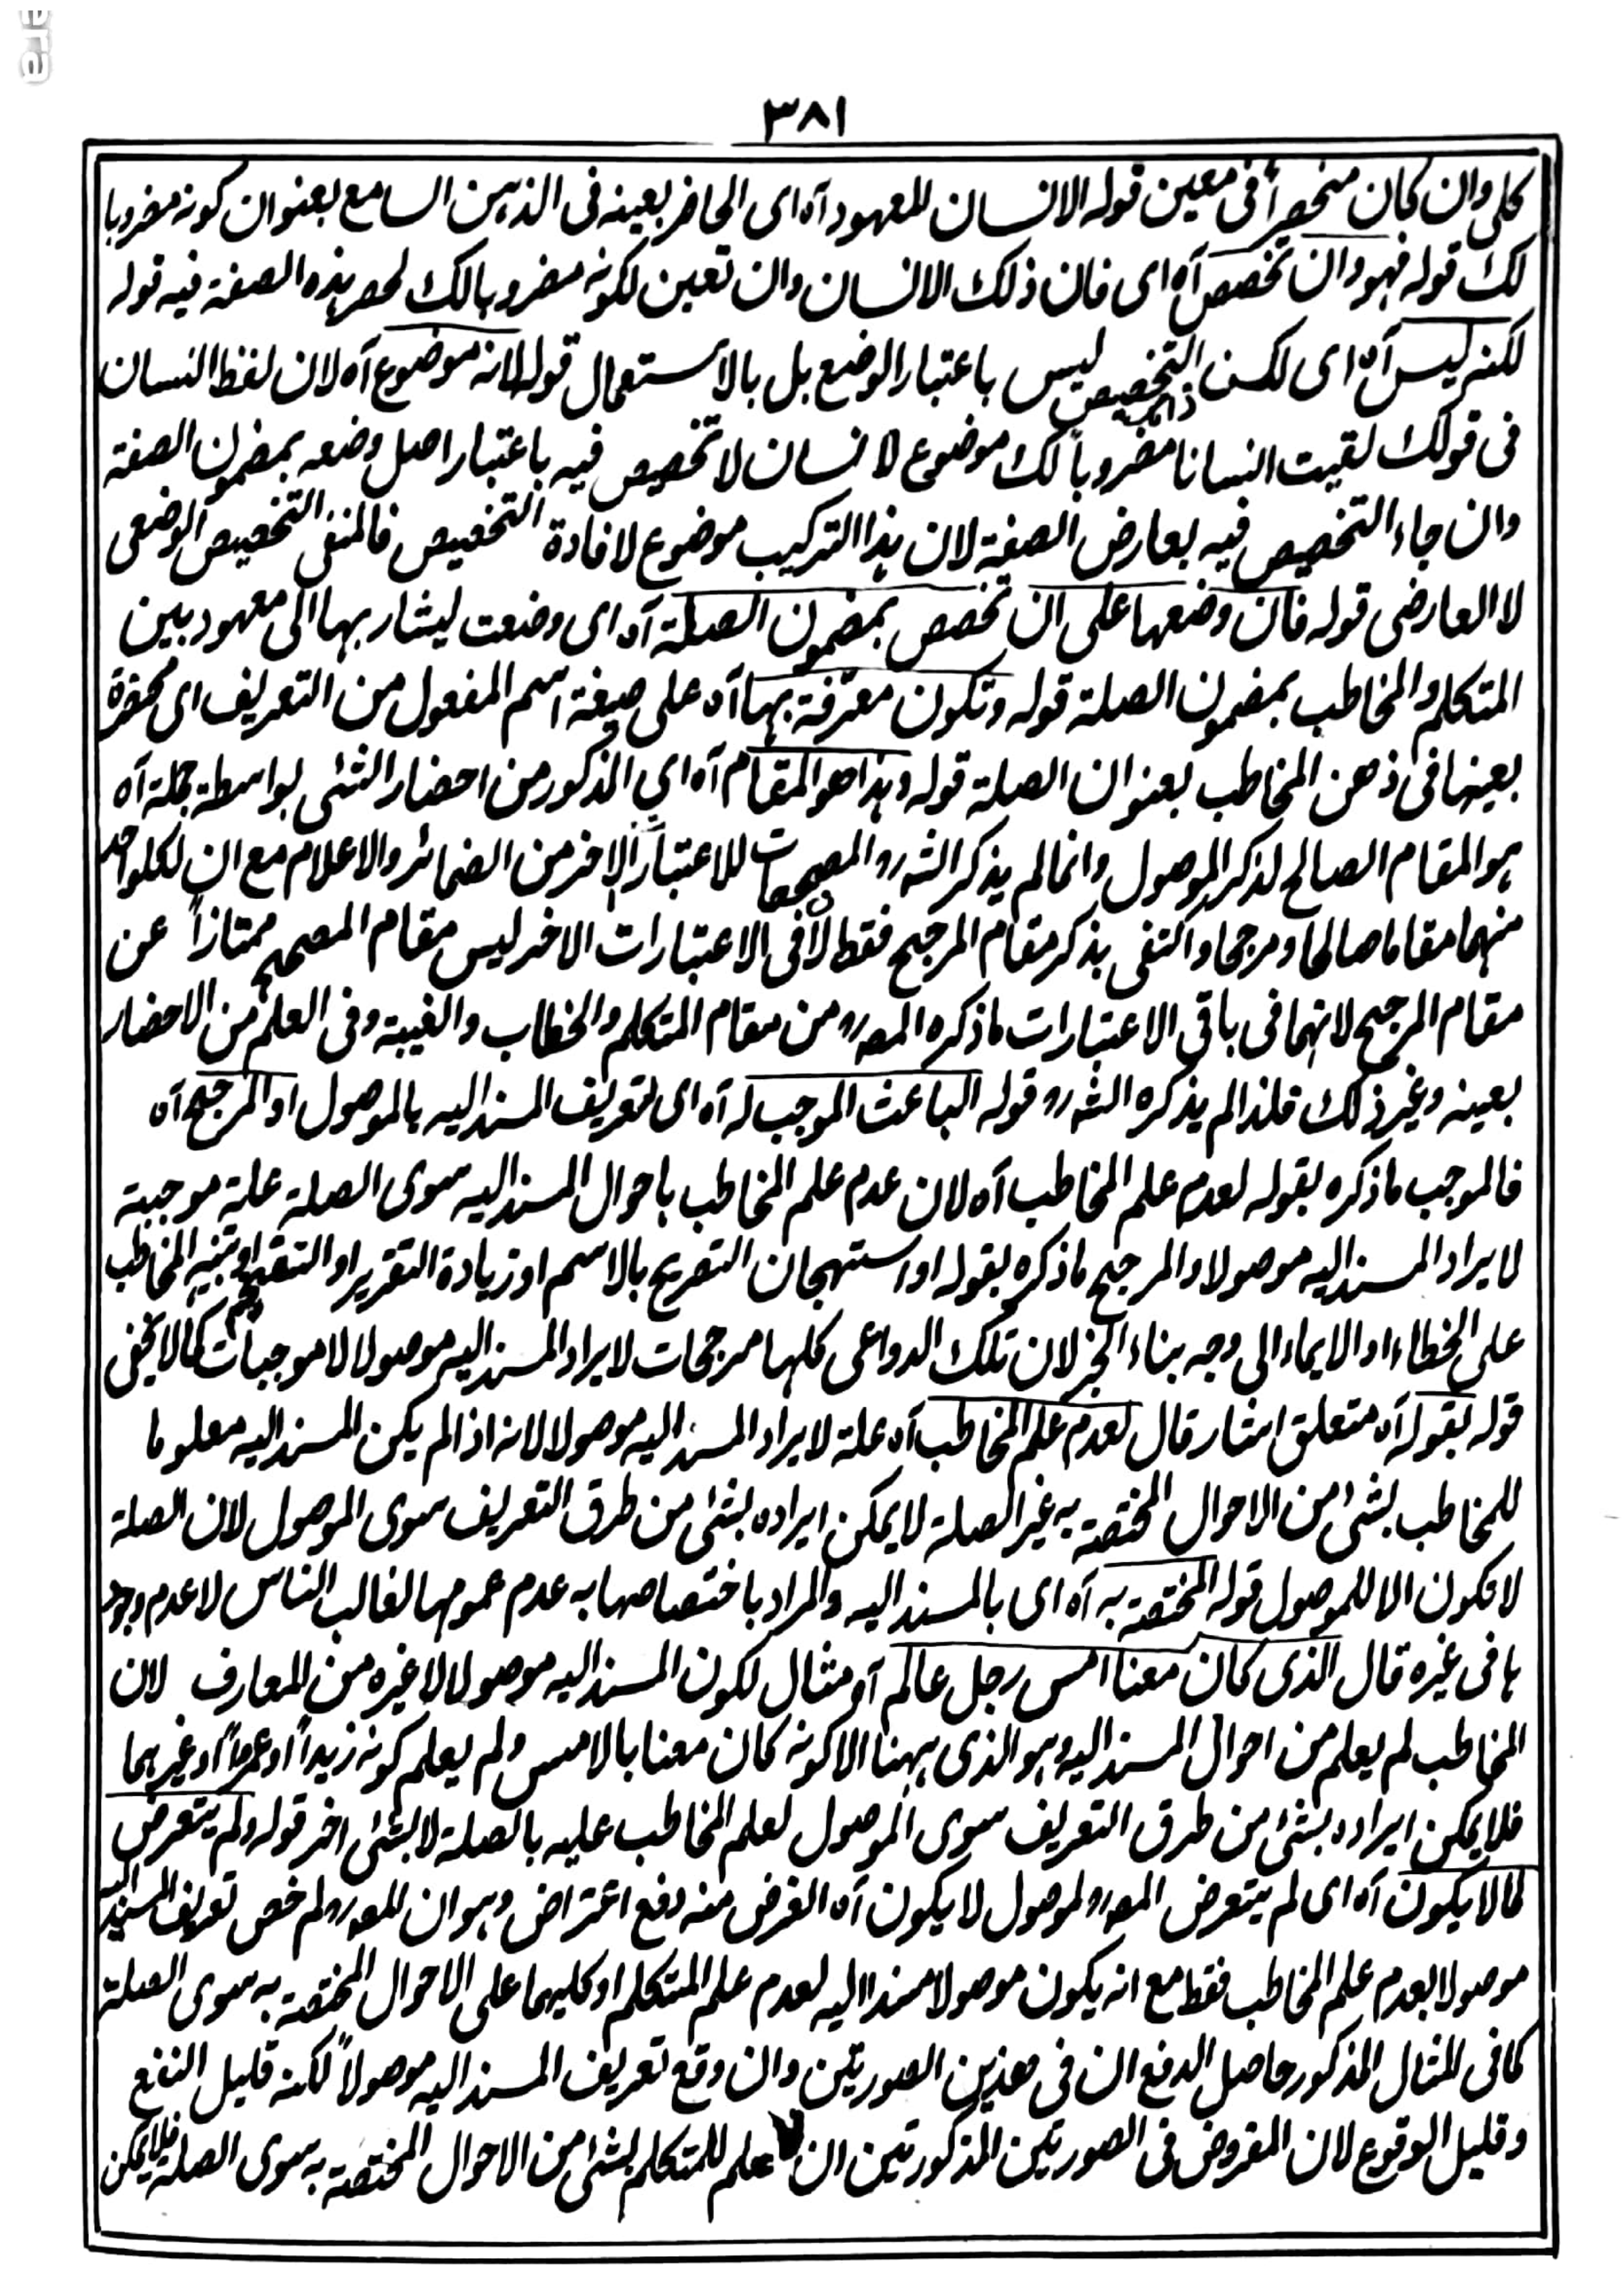 ٣٨١
كلى وان كان منحصرا فى معين قوله الانسان للمعهود آه اى الحاضر بعينه فى الذهن السامع بعنوان كونه مضروبا
لك قوله فهو وان تخصص آه اى فان ذلك الانسان وان تعين لكونه مضروبا لك لحصر هذه الصفة فيه قوله
لكنه ليس آه اى لكن التخصيص ليس باعتبار الوضع بل بالاستعمال قوله لانه موضوع آه لان لفظ انسان
فى قولك لقيت انسانا مضروباً لك موضوع لانسان لا تخصيص فيه باعتبار اصل وضعه بمضمون الصفة
وان جاء التخصيص فيه بعارض الصفة لان هذا التركيب موضوع لافادة التخصيص فالمنفى التخصيص الوضعى
لا العارضى قوله فان وضعها على ان تخصص بمضمون الصلة آه اى وضعت ليشار بها الى معهود بين
المتكلم والمخاطب بمضمون الصلة قوله وتكون معرّفة بها آه على صيغة اسم المفعول من التعريف اى محضرة
بعينها فى ذهن المخاطب بعنوان الصلة قوله وهذا هو المقام آه اى المذكور من احضار الشئ بواسطة جملة آه
هو المقام الصالح لذكر الموصول وانما لم يذكر الشه رہ المصححات للاعتبار الاخر من الضمائر والاعلام مع ان لكلواحد
منهما مقاما صالحا ومرجحا واكتفى بذكر مقام المرجح فقط لان فى الاعتبارات الاخر ليس مقام المصحح ممتازاً عن
مقام المرجح لانهما فى باقى الاعتبارات ما ذكره المصه رہ من مقام المتكلم والخطاب والغيبة وفى العلم من الاحضار
بعينه وغير ذلك فلذا لم يذكره الشه رہ قوله الباعث الموجب له آه اى لتعريف المسند اليه بالموصول او المرجح آه
فالموجب ما ذكره بقوله لعدم علم المخاطب آه لان عدم علم المخاطب باحوال المسند اليه سوى الصلة علة موجبة
لايراد المسند اليه موصولا والمرجح ما ذكره بقوله او استهجان التصريح بالاسم او زيادة التقرير او التفخيم او تنبيه المخاطب
على الخطاء او الايماء الى وجه بناء الخبر لان تلك الدواعى كلها مرجحات لايراد المسند اليه موصولا لا موجبات كما لا يخفى
قوله بقوله آه متعلق اشار قال لعدم علم المخاطب آه علة لايراد المسند اليه موصولا لانه اذا لم يكن المسند اليه معلوما
للمخاطب بشئ من الاحوال المختصة به غير الصلة لا يمكن ايراده بشئ من طرق التعريف سوى الموصول لان الصلة
لا تكون الا للموصول قوله المختصة به آه اى بالمسند اليه والمراد باختصاصها به عدم عمومها لغالب الناس لا عدم وجود
ها فى غيره قال الذى كان معنا امس رجل عالم آه مثال لكون المسند اليه موصولا لا غيره من المعارف لان
المخاطب لم يعلم من احوال المسند اليه وهو الذى ههنا الا كونه كان معنا بالامس ولم يعلم كونه زيداً او عمرواً او غيرهما
فلا يمكن ايراده بشئ من طرق التعريف سوى الموصول لعلم المخاطب عليه بالصلة لا بشئ اخر قوله ولم يتعرض
لما لا يكون آه اى لم يتعرض المصه رہ لموصول لا يكون آه الغرض منه دفع اعتراض وهو ان المصه رہ لم خص تعريف المسند اليه
موصولا بعدم علم المخاطب فقط مع انه يكون موصولا مسندا اليه لعدم علم المتكلم او كليهما على الاحوال المختصة به سوى الصلة
كما فى المثال المذكور حاصل الدفع ان فى هذين الصورتين وان وقع تعريف المسند اليه موصولاً لكنه قليل النفع
وقليل الوقوع لان المفروض فى الصورتين المذكورتين ان لا علم للمتكلم بشئ من الاحوال المختصة به سوى الصلة فلا يمكن